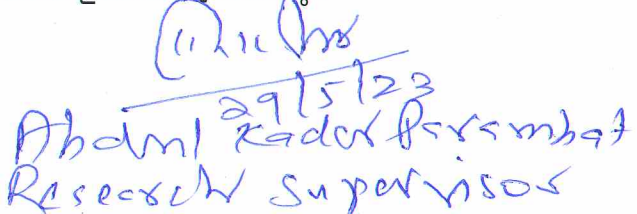 29/5/23
Abdul Kader Parambat
Research Supervisor